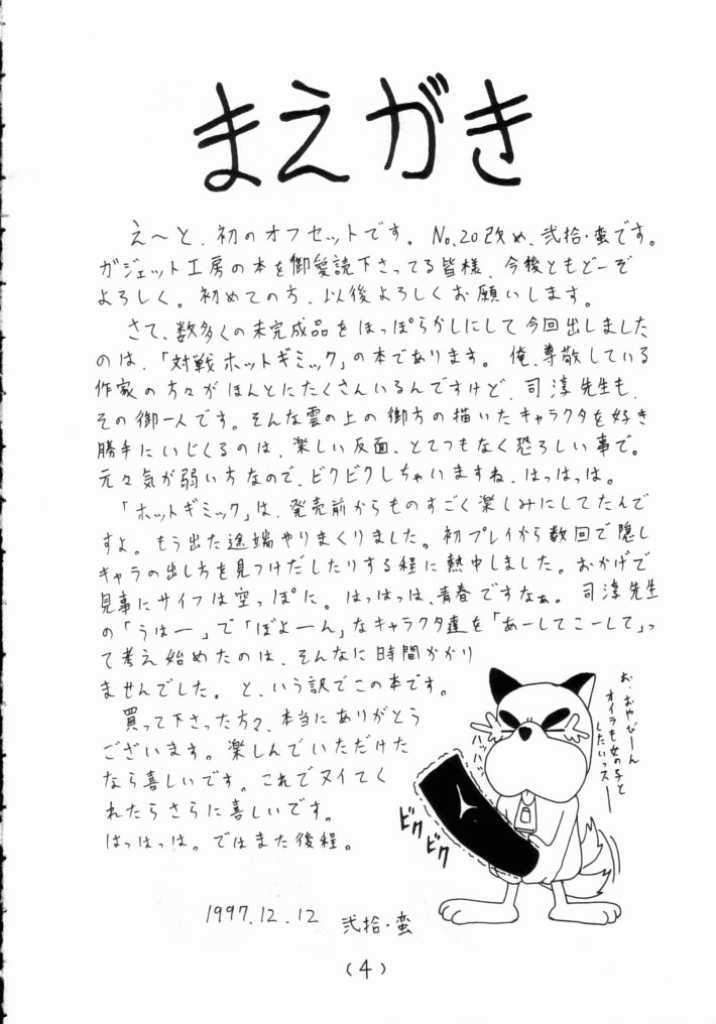 まえがき
え〜と、初のオフセットです。No.20改め、弐拾・蛮です。
ガジェット工房の本を御愛読下さってる皆様、今後ともどーぞ
よろしく。初めての方、以後よろしくお願いします。
さて、数多くの未完成品をほっぽらかしにして今回出しました
のは、「対戦ホットギミック」の本であります。俺、尊敬している
作家の方々がほんとにたくさんいるんですけど、司淳先生も、
その御一人です。そんな雲の上の御方の描いたキャラクタを好き
勝手にいじくるのは、楽しい反面、とてつもなく恐ろしい事で。
元々気が弱い方なので、ビクビクしちゃいますね、はっはっは。
「ホットギミック」は、発売前からものすごく楽しみにしてたんで
すよ。もう出た途端やりまくりました。初プレイから数回で隠し
キャラの出し方を見つけだしたりする程に熱中しました。おかげで
見事にサイフは空っぽに。はっはっは、青春ですなぁ。司淳先生
の「うはー」で「ぼよーん」なキャラクタ達を「あーしてこーして」っ
て考え始めたのは、そんなに時間かかり
ませんでした。と、いう訳でこの本です。
買って下さった方々、本当にありがとう
ございます。楽しんでいただけた
なら喜しいです。これでヌイてく
れたらさらに喜しいです。
はっはっは。ではまた後程。
1997.12.12 弐拾・蛮
お・おやびーん
オイラも女の子と
したいっスー
ハッハッ
ビク
ビク
(4)